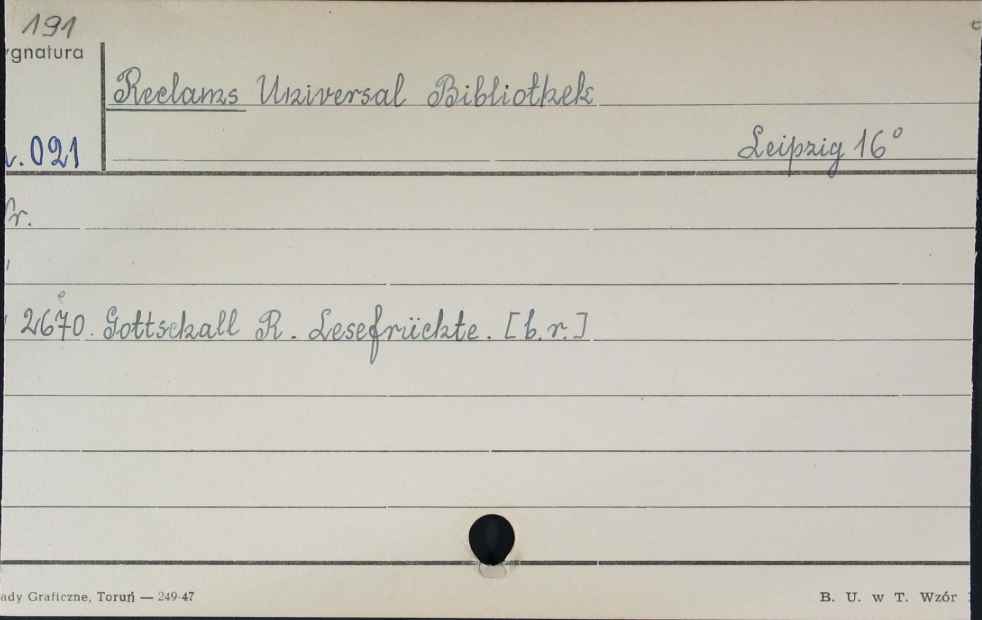 191
ygnatura
Reclams Universal Bibliothek
.021
Leipzig 16°
Nr.
2670. Gottschall R. Lesefrüchte. [b.r.]
ady Graficzne, Toruń — 249-47
B. U. w T. Wzór